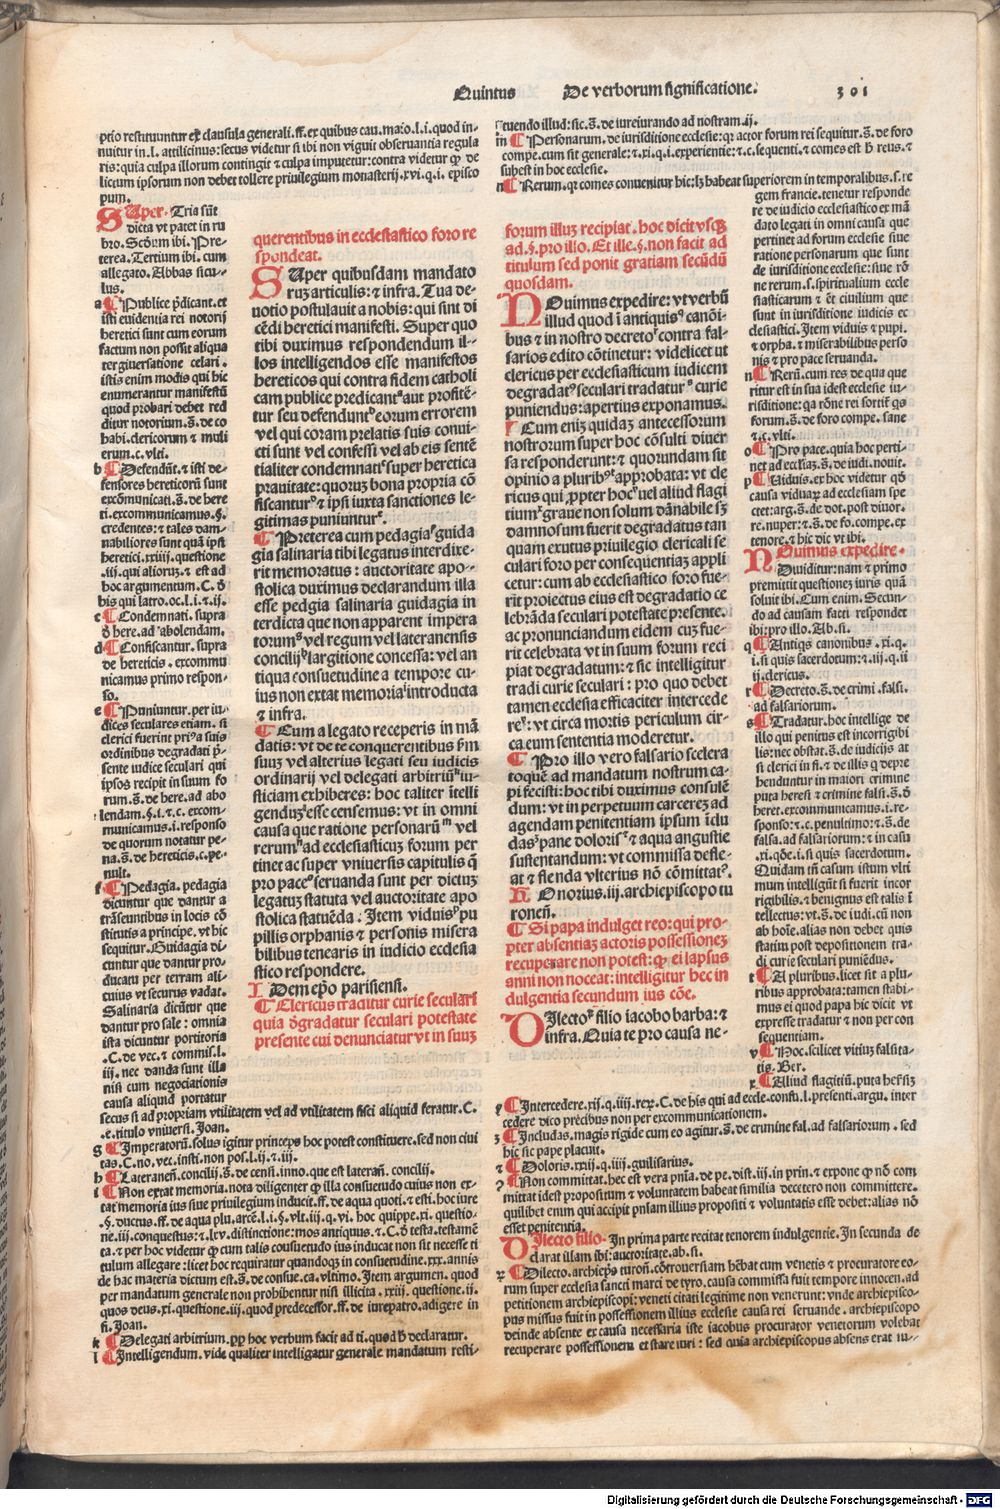 Quintus De verborum significatione. 301
ptio restituuntur et clausula generali. ff. ex quibus cau. ma: o. l. i. quod in-
nuitur in. l. attilicinus: secus videtur si ibi non viguit obseruantia regula
ris: quia culpa illorum contingit et culpa imputetur: contra videtur qp de
lictum ipsorum non debet tollere priuilegium monasterij. xvi. q. i. episco
pum.
SUper. Tria sūt
dicta vt patet in ru
bro. Scd'm ibi. Pre-
terea. Tertium ibi. cum
allegato. Abbas sicu-
lus.
a ¶ Publice p̄dicant. et
isti euidentia rei notorij
heretici sunt cum eorum
factum non possit aliqua
tergiuersatione celari.
istis enim modis qui hic
enumerantur manifestū
quod probari debet red
ditur notorium. s̄. de co
habi. clericorum et muli
erum. c. vlti.
b ¶ Defendūt. et isti de-
fensores hereticorū sunt
excōmunicati. s̄. de here
ti. excommunicamus. §.
credentes: et tales dam-
nabiliores sunt quā ipsi
heretici. xxiiii. questione
.iii. qui aliorum. et est ad
hoc argumentum. C. d'
his qui latro. oc. l. i. et. ij.
c ¶ Condemnati. supra
d' here. ad abolendam.
d ¶ Confiscantur. supra
de hereticis. excommu
nicamus primo respon-
so.
e ¶ Puniuntur. per iu-
dices seculares etiam. si
clerici fuerint pri9 a suis
ordinibus degradati p̄-
sente iudice seculari qui
ipsos recipit in suum fo
rum. s̄. de here. ad abo
lendam. §. i. et. c. excom-
municamus. i. responso
de quorum notatur pe-
na. s̄. de hereticis. c. pe-
nult.
f ¶ Pedagia. pedagia
dicuntur que dantur a
trāseuntibus in locis cō
stitutis a principe. vt hic
sequitur. Guidagia di-
cuntur que dantur pro-
ducatu per terram ali-
cuius vt securus vadat.
Salinaria dicūtur que
dantur pro sale: omnia
ista dicuntur portitoria
.C. de vec. et commis. l.
iij. nec danda sunt illa
nisi cum negociationis
causa aliquid portatur
secus si ad propriam vtilitatem vel ad vtilitatem fisci aliquid feratur. C.
e. titulo vniuersi. Joan.
g ¶ Imperatorū. solus igitur princeps hoc potest constituere. sed non ciui
tas. C. no. vec. insti. non pos. l. ij. et. iij.
h ¶ Lateranen̄. concilij. s̄. de censi. inno. que est lateran̄. concilij.
i ¶ Non extat memoria. nota diligenter qp illa consuetudo cuius non ex-
tat memoria ius siue priuilegium inducit. ff. de aqua quoti. et esti. hoc iure
§. ductus. ff. de aqua plu. arcē. l. i. §. vlt. iij. q. vi. hoc quippe. xi. questio-
ne. iij. conquestus: et. lxv. distinctione: mos antiquus. et. C. d' testa. testamē
ta. et per hoc videtur qp cum talis consuetudo ius inducat non sit necesse ti
tulum allegare: licet hoc requiratur quandoqz in consuetudine. xxx. annis
de hac materia dictum est. s̄. de consue. ca. vltimo. Item argumen. quod
per mandatum generale non prohibentur nisi illicita. xxiii. questione. ii.
quos deus. xi. questione. iij. quod predecessor. ff. de iurepatro. adigere in
fi. Joan.
k ¶ Delegati arbitrium. pp̄ hoc verbum facit ad ti. quod h̄ declaratur.
l ¶ Intelligendum. vide qualiter intelligatur generale mandatum resti-
querentibus in ecclesiastico foro re
spondeat.
SUper quibusdam mandato
ruz articulis: et infra. Tua de-
uotio postulauit a nobis: qui sint di
cēdi heretici manifesti. Super quo
tibi duximus respondendum il-
los intelligendos esse manifestos
hereticos qui contra fidem catholi
cam publice predicant aut profitē-
tur seu defendunt eorum errorem
vel qui coram prelatis suis conui-
cti sunt vel confessi vel ab eis sentē
tialiter condemnati super heretica
prauitate: quoruz bona propria cō
fiscantur et ipsi iuxta sanctiones le-
gitimas puniuntur.
¶ Preterea cum pedagia guida
gia salinaria tibi legatus interdixe-
rit memoratus: auctoritate apo-
stolica duximus declarandum illa
esse pedgia salinaria guidagia in
terdicta que non apparent impera
torum vel regum vel lateranensis
concilij largitione concessa: vel an
tiqua consuetudine a tempore cu-
ius non extat memoria introducta
et infra.
¶ Cum a legato receperis in mā
datis: vt de te conquerentibus b̄m
suuz vel alterius legati seu iudicis
ordinarij vel delegati arbitriū iu-
sticiam exhiberes: hoc taliter itelli
genduz esse censemus: vt in omni
causa que ratione personarū vel
rerum ad ecclesiasticuz forum per
tinet ac super vniuersis capitulis q̄
pro pace seruanda sunt per dictuz
legatuz statuta vel auctoritate apo
stolica statuēda. Item viduis pu
pillis orphanis et personis misera
bilibus tenearis in iudicio ecclesia
stico respondere.
IDem ep̄o parisiensi.
¶ Clericus traditur curie seculari
quia d'gradatur seculari potestate
presente cui denunciatur vt in suuz
forum illuz recipiat. hoc dicit vsqz
ad. §. pro illo. Et ille. §. non facit ad
titulum sed ponit gratiam secūdū
quosdam.
NOuimus expedire: vt verbū
illud quod i antiquis canōi-
bus et in nostro decreto contra fal-
sarios edito cōtinetur: videlicet ut
clericus per ecclesiasticum iudicem
degradat9 seculari tradatur curie
puniendus: apertius exponamus.
¶ Cum eniz quidaz antecessorum
nostrorum super hoc cōsulti diuer
sa responderunt: et quorundam sit
opinio a pluribus approbata: vt cle
ricus qui propter hoc uel aliud flagi
tium graue non solum dānabile sz
damnosum fuerit degradatus tan
quam exutus priuilegio clericali se
culari foro per consequentiaz appli
cetur: cum ab ecclesiastico foro fue-
rit proiectus eius est degradatio ce
lebrāda seculari potestate presente.
ac pronunciandum eidem cuz fue-
rit celebrata vt in suum forum reci
piat degradatum: et sic intelligitur
tradi curie seculari: pro quo debet
tamen ecclesia efficaciter intercede
re: vt circa mortis periculum cir-
ca eum sententia moderetur.
¶ Pro illo vero falsario scelera
toqué ad mandatum nostrum ca-
pi fecisti: hoc tibi duximus consulē
dum: vt in perpetuum carcerez ad
agendam penitentiam ipsum iclu
das: pane doloris et aqua angustie
sustentandum: vt commissa defle-
at et flenda vlterius nō cōmittat.
HOnorius. iij. archiepiscopo tu
ronen̄.
¶ Si papa indulget reo: qui pro-
pter absentiaz actoris possessionez
recuperare non potest: qp ei lapsus
anni non noceat: intelligitur hec in
dulgentia secundum ius cōe.
DIlecto filio iacobo barba: et
infra. Quia te pro causa ne-
tuendo illud: sic. s̄. de iureiurando ad nostram. ij.
m ¶ Personarum. de iurisditione ecclesie: qz actor forum rei sequitur. s̄. de foro
compe. cum sit generale: et. xi. q. i. experientie: et. c. sequenti. et comes est h̄ reus. et
subest in hoc ecclesie.
n ¶ Rerum. qz comes conuenitur hic: lz habeat superiorem in temporalibus. s. re
gem francie. tenetur responde
re de iudicio ecclesiastico ex mā
dato legati in omni causa que
pertinet ad forum ecclesie siue
ratione personarum que sunt
de iurisditione ecclesie: siue rō
ne rerum. s. spiritualium eccle
siasticarum et et̄ ciuilium que
sunt in iurisditione iudicis ec
clesiastici. Item viduis et pupi.
et orpha. et miserabilibus perso
nis et pro pace seruanda.
n ¶ Rerū. cum res de qua que
ritur est in sua idest ecclesie iu-
risditione: qa rōne rei sortit̄ qs
forum. s̄. de foro compe. sane
et. c. vlti.
o ¶ Pro pace. quia hoc perti-
net ad ecclīaz. s̄. de iudi. nouit.
p ¶ Uiduis. ex hoc videtur qd'
causa viduarz ad ecclesiam spe
ctet: arg. s̄. de dot. post diuor.
re. nuper: et. s̄. de fo. compe. ex
tenore. et hic dic vt ibi.
NOuimus expedire.
Diuiditur: nam et primo
premittit questionez iuris quā
soluit ibi. Cum enim. Secun-
do ad causam facti respondet
ibi: pro illo. Ab. si.
q ¶ Antiqs canonibus. xi. q.
i. si quis sacerdotum: et. iij. q. ii
ij. clericus.
r ¶ Decreto. s̄. de crimi. falsi.
ad falsariorum.
s ¶ Tradatur. hoc intellige de
illo qui penitus est incorrigibi
lis: nec obstat. s̄. de iudicijs at
si clerici in fi. et de illis q depre
henduntur in maiori crimine
puta heresi et crimine falsi. s̄. d'
heret. excommunicamus. i. re-
sponso: et. c. penultimo: et. s̄. de
falsa. ad falsariorum: et in casu
.xi. qōe. i. si quis sacerdotum.
Quidam tn̄ casum istum vlti
mum intelligūt si fuerit incor
rigibilis. et benignus est talis i
tellectus: vt. s̄. de iudi. cū non
ab hoīe. alias non debet quis
statim post depositionem tra-
di curie seculari puniēdus.
t ¶ A pluribus. licet sit a plu-
ribus approbata: tamen stabi-
mus ei quod papa hic dicit vt
expresse tradatur et non per con
sequentiam.
v ¶ Hoc. scilicet vitiuz falsita-
tis. Ber.
x ¶ Aliud flagitiū. puta heresiz
y ¶ Intercedere. xij. q. iiij. rex. C. de his qui ad eccle. confu. l. presenti. argu. inter
cedere dico precibus non per excommunicationem.
z ¶ Includas. magis rigide cum eo agitur. s̄. de crimine fal. ad falsariorum. sed
hic sic pape placuit.
et ¶ Doloris. xxij. q. iiii. guilisarius.
9 ¶ Non committat. hec est vera pnīa. de pe. dist. iij. in prin. et expone qp nō com
mittat idest propositum et voluntatem habeat similia decetero non committere.
quilibet enim qui accipit pnīam illius propositi et voluntatis esse debet: alias nō
esset penitentia.
DIlecto filio. In prima parte recitat tenorem indulgentie. In secunda de
clarat illam ibi: auctoritate. ab. si.
¶ Dilecto. archiep̄s turon̄. cōtrouersiam hēbat cum venetis et procuratore eo-
rum super ecclesia sancti marci de tyro. causa commissa fuit tempore innocen. ad
petitionem archiepiscopi: veneti citati legitime non venerunt: vnde archiepisco-
pus missus fuit in possessionem illius ecclesie causa rei seruande. archiepiscopo
deinde absente ex causa necessaria iste iacobus procurator venetorum volebat
recuperare possessionem et stare iuri: sed quia archiepiscopus absens erat iu-
Digitalisierung gefördert durch die Deutsche Forschungsgemeinschaft - DFG